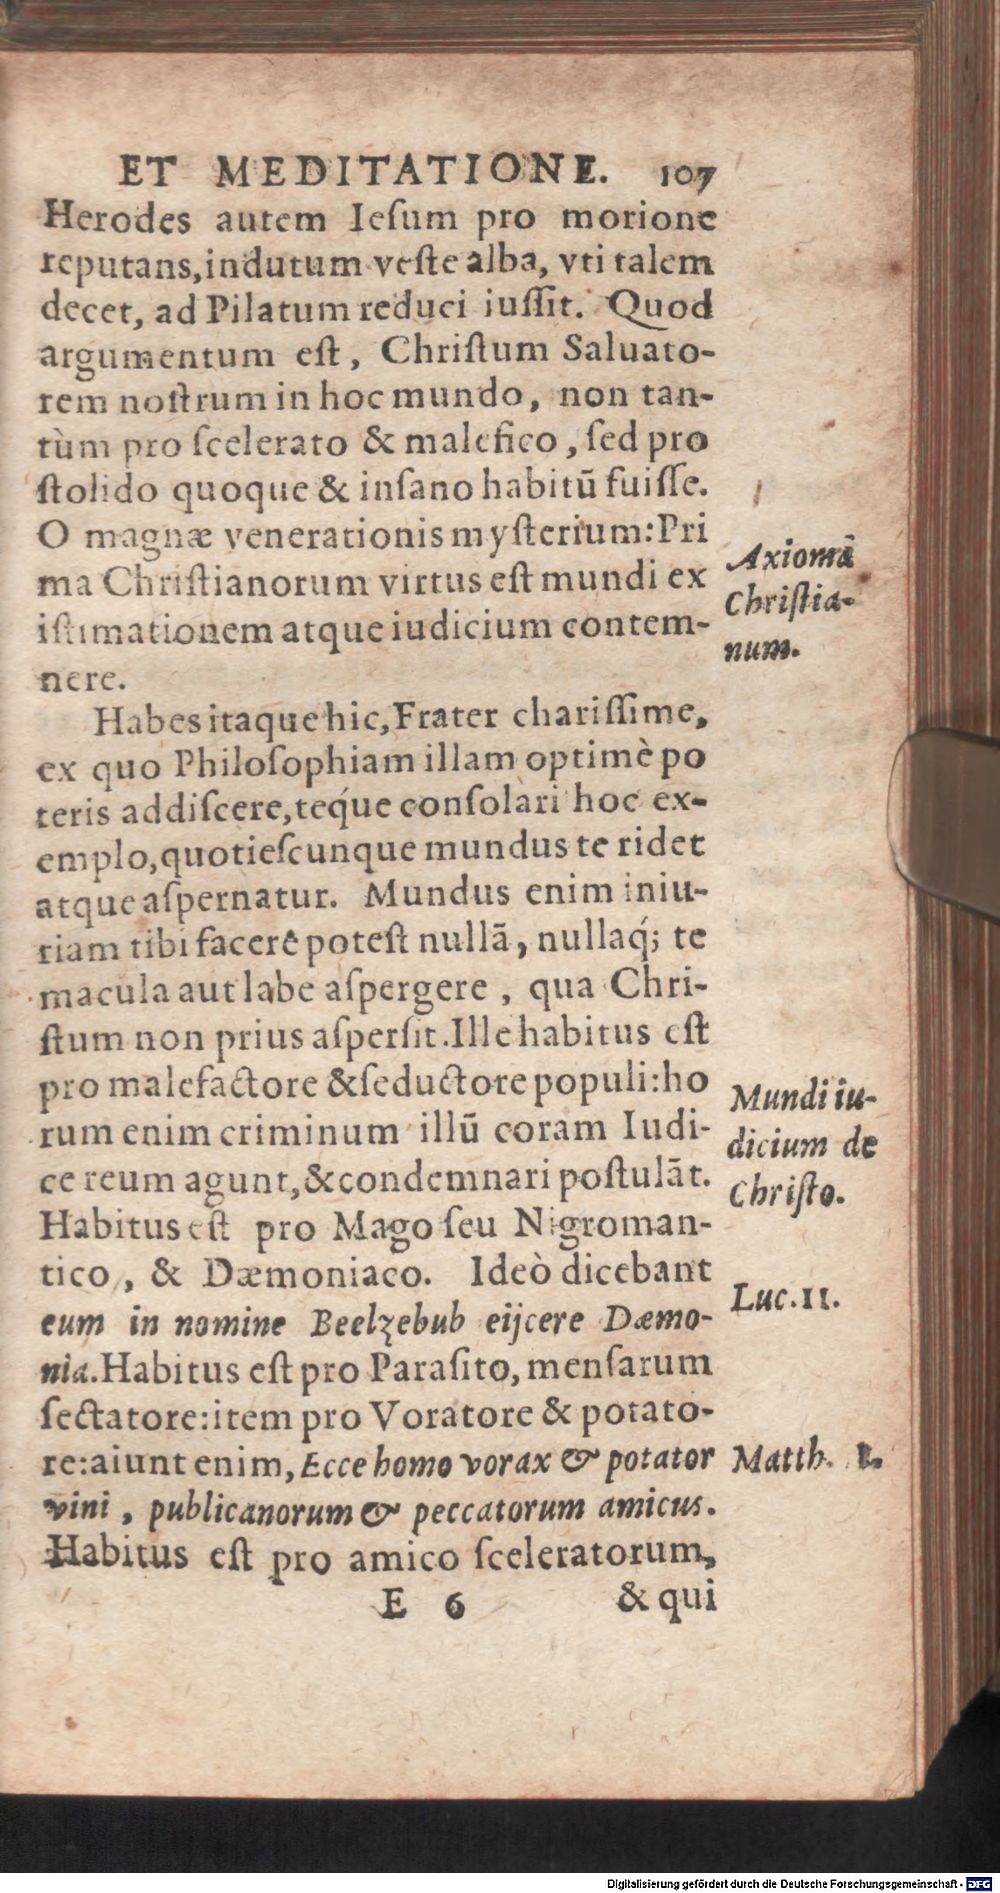 ET MEDITATIONE. 107
Herodes autem Ieſum pro morione
reputans, indutum veſte alba, vti talem
decet, ad Pilatum reduci iuſſit. Quod
argumentum eſt, Chriſtum Saluato-
rem noſtrum in hoc mundo, non tan-
tùm pro ſcelerato & malefico, ſed pro
ſtolido quoque & inſano habitū fuiſſe.
O magnæ venerationis myſterium: Pri
ma Chriſtianorum virtus eſt mundi ex
iſtimationem atque iudicium contem-
nere.
Axioma
Chriſtia-
num.
Habes itaque hic, Frater chariſſime,
ex quo Philoſophiam illam optimè po
teris addiſcere, teq́ue conſolari hoc ex-
emplo, quotieſcunque mundus te ridet
atque aſpernatur. Mundus enim iniu-
riam tibi facere poteſt nullā, nullaq́; te
macula aut labe aſpergere, qua Chri-
ſtum non prius aſperſit. Ille habitus eſt
pro malefactore & ſeductore populi: ho
rum enim criminum illū coram Iudi-
ce reum agunt, & condemnari poſtulāt.
Habitus eſt pro Mago ſeu Nigroman-
tico, & Dæmoniaco. Ideò dicebant
eum in nomine Beelzebub eijcere Dæmo-
nia. Habitus eſt pro Paraſito, menſarum
ſectatore: item pro Voratore & potato-
re: aiunt enim, Ecce homo vorax & potator
vini, publicanorum & peccatorum amicus.
Habitus eſt pro amico ſceleratorum,
Mundi iu-
dicium de
Chriſto.
Luc. 11.
Matth.
E 6 & qui
Digitalisierung gefördert durch die Deutsche Forschungsgemeinschaft - DFG